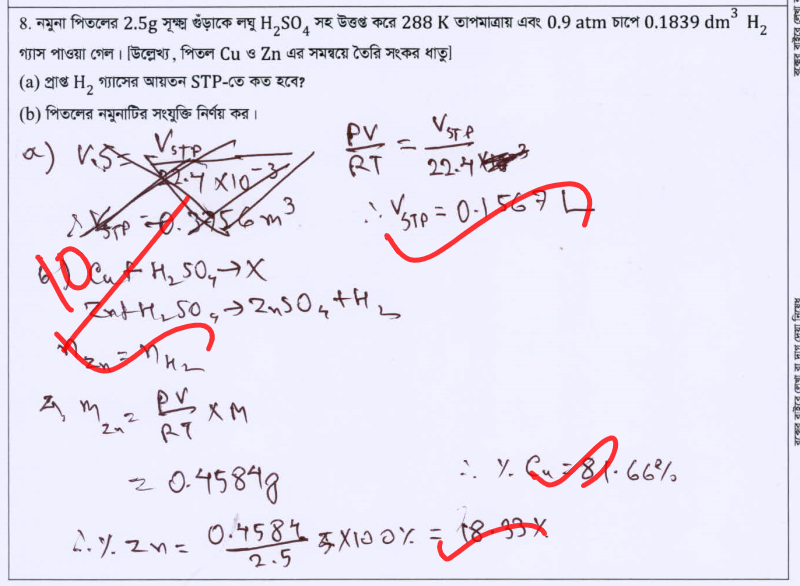 8. নমুনা পিতলের 2.5g সূক্ষ্ম গুঁড়াকে লঘু H₂SO₄ সহ উত্তপ্ত করে 288 K তাপমাত্রায় এবং 0.9 atm চাপে 0.1839 dm³ H₂
গ্যাস পাওয়া গেল। [উল্লেখ্য, পিতল Cu ও Zn এর সমন্বয়ে তৈরি সংকর ধাতু]
(a) প্রাপ্ত H₂ গ্যাসের আয়তন STP-তে কত হবে?
(b) পিতলের নমুনাটির সংযুক্তি নির্ণয় কর।
a) V.S = V_STP / 22.4 × 10⁻³
∴ V_STP = 0.3756 m³
PV/RT = V_STP / 22.4
∴ V_STP = 0.1567 L
10
b) Cu + H₂SO₄ → X
Zn + H₂SO₄ → ZnSO₄ + H₂
n_Zn = n_H₂
m_Zn = PV/RT × M
= 0.4584g
∴ % Zn = 0.4584/2.5 × 100% = 18.33%
∴ % Cu = 81.66%